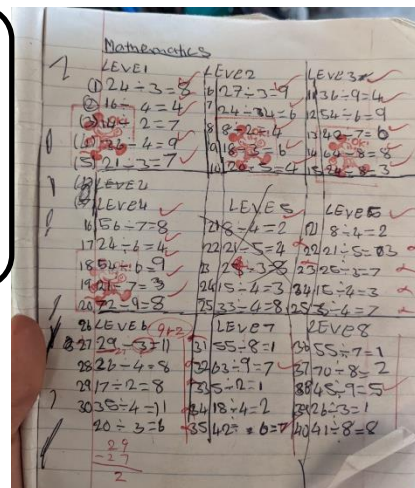 Mathematics
LEVEL1
① 24 ÷ 3 = 8
② 16 ÷ 4 = 4
÷ 2 = 7
÷ 4 = 9
(5) 21 ÷ 3 = 7
LEVEL2
6 27 ÷ 3 = 9
7 24 ÷ 4 = 6
8 8 ÷ 2 = 4
9 18 ÷ 3 = 6
10 20 ÷ 5 = 4
LEVEL3
11 36 ÷ 9 = 4
12 54 ÷ 6 = 9
13 42 ÷ 7 = 6
14 64 ÷ 8 = 8
15 24 ÷ 8 = 3
LEVEL4
16 56 ÷ 7 = 8
17 24 ÷ 6 = 4
18 54 ÷ 6 = 9
19 21 ÷ 7 = 3
20 72 ÷ 9 = 8
LEVEL5
21 8 ÷ 4 = 2
22 21 ÷ 5 = 4
23 25 ÷ 3 = 8
24 15 ÷ 4 = 3
25 33 ÷ 4 = 8
LEVEL5
21 8 ÷ 4 = 2
22 21 ÷ 5 = 3
23 25 ÷ 3 = 7
24 15 ÷ 4 = 3
25 ÷ 4 = 7
26 LEVEL6
9r2
27 29 ÷ 3 = 11
28 26 ÷ 4 = 8
29 17 ÷ 2 = 8
30 35 ÷ 4 = 11
20 ÷ 3 = 6
29
- 27
2
LEVEL7
31 55 ÷ 8 = 1
32 63 ÷ 9 = 7
33 5 ÷ 2 = 1
34 18 ÷ 4 = 2
35 42 ÷ 6 = 7
LEVEL8
36 55 ÷ 7 = 1
37 70 ÷ 8 = 2
38 45 ÷ 9 = 5
39 26 ÷ 3 = 1
40 41 ÷ 8 = 8